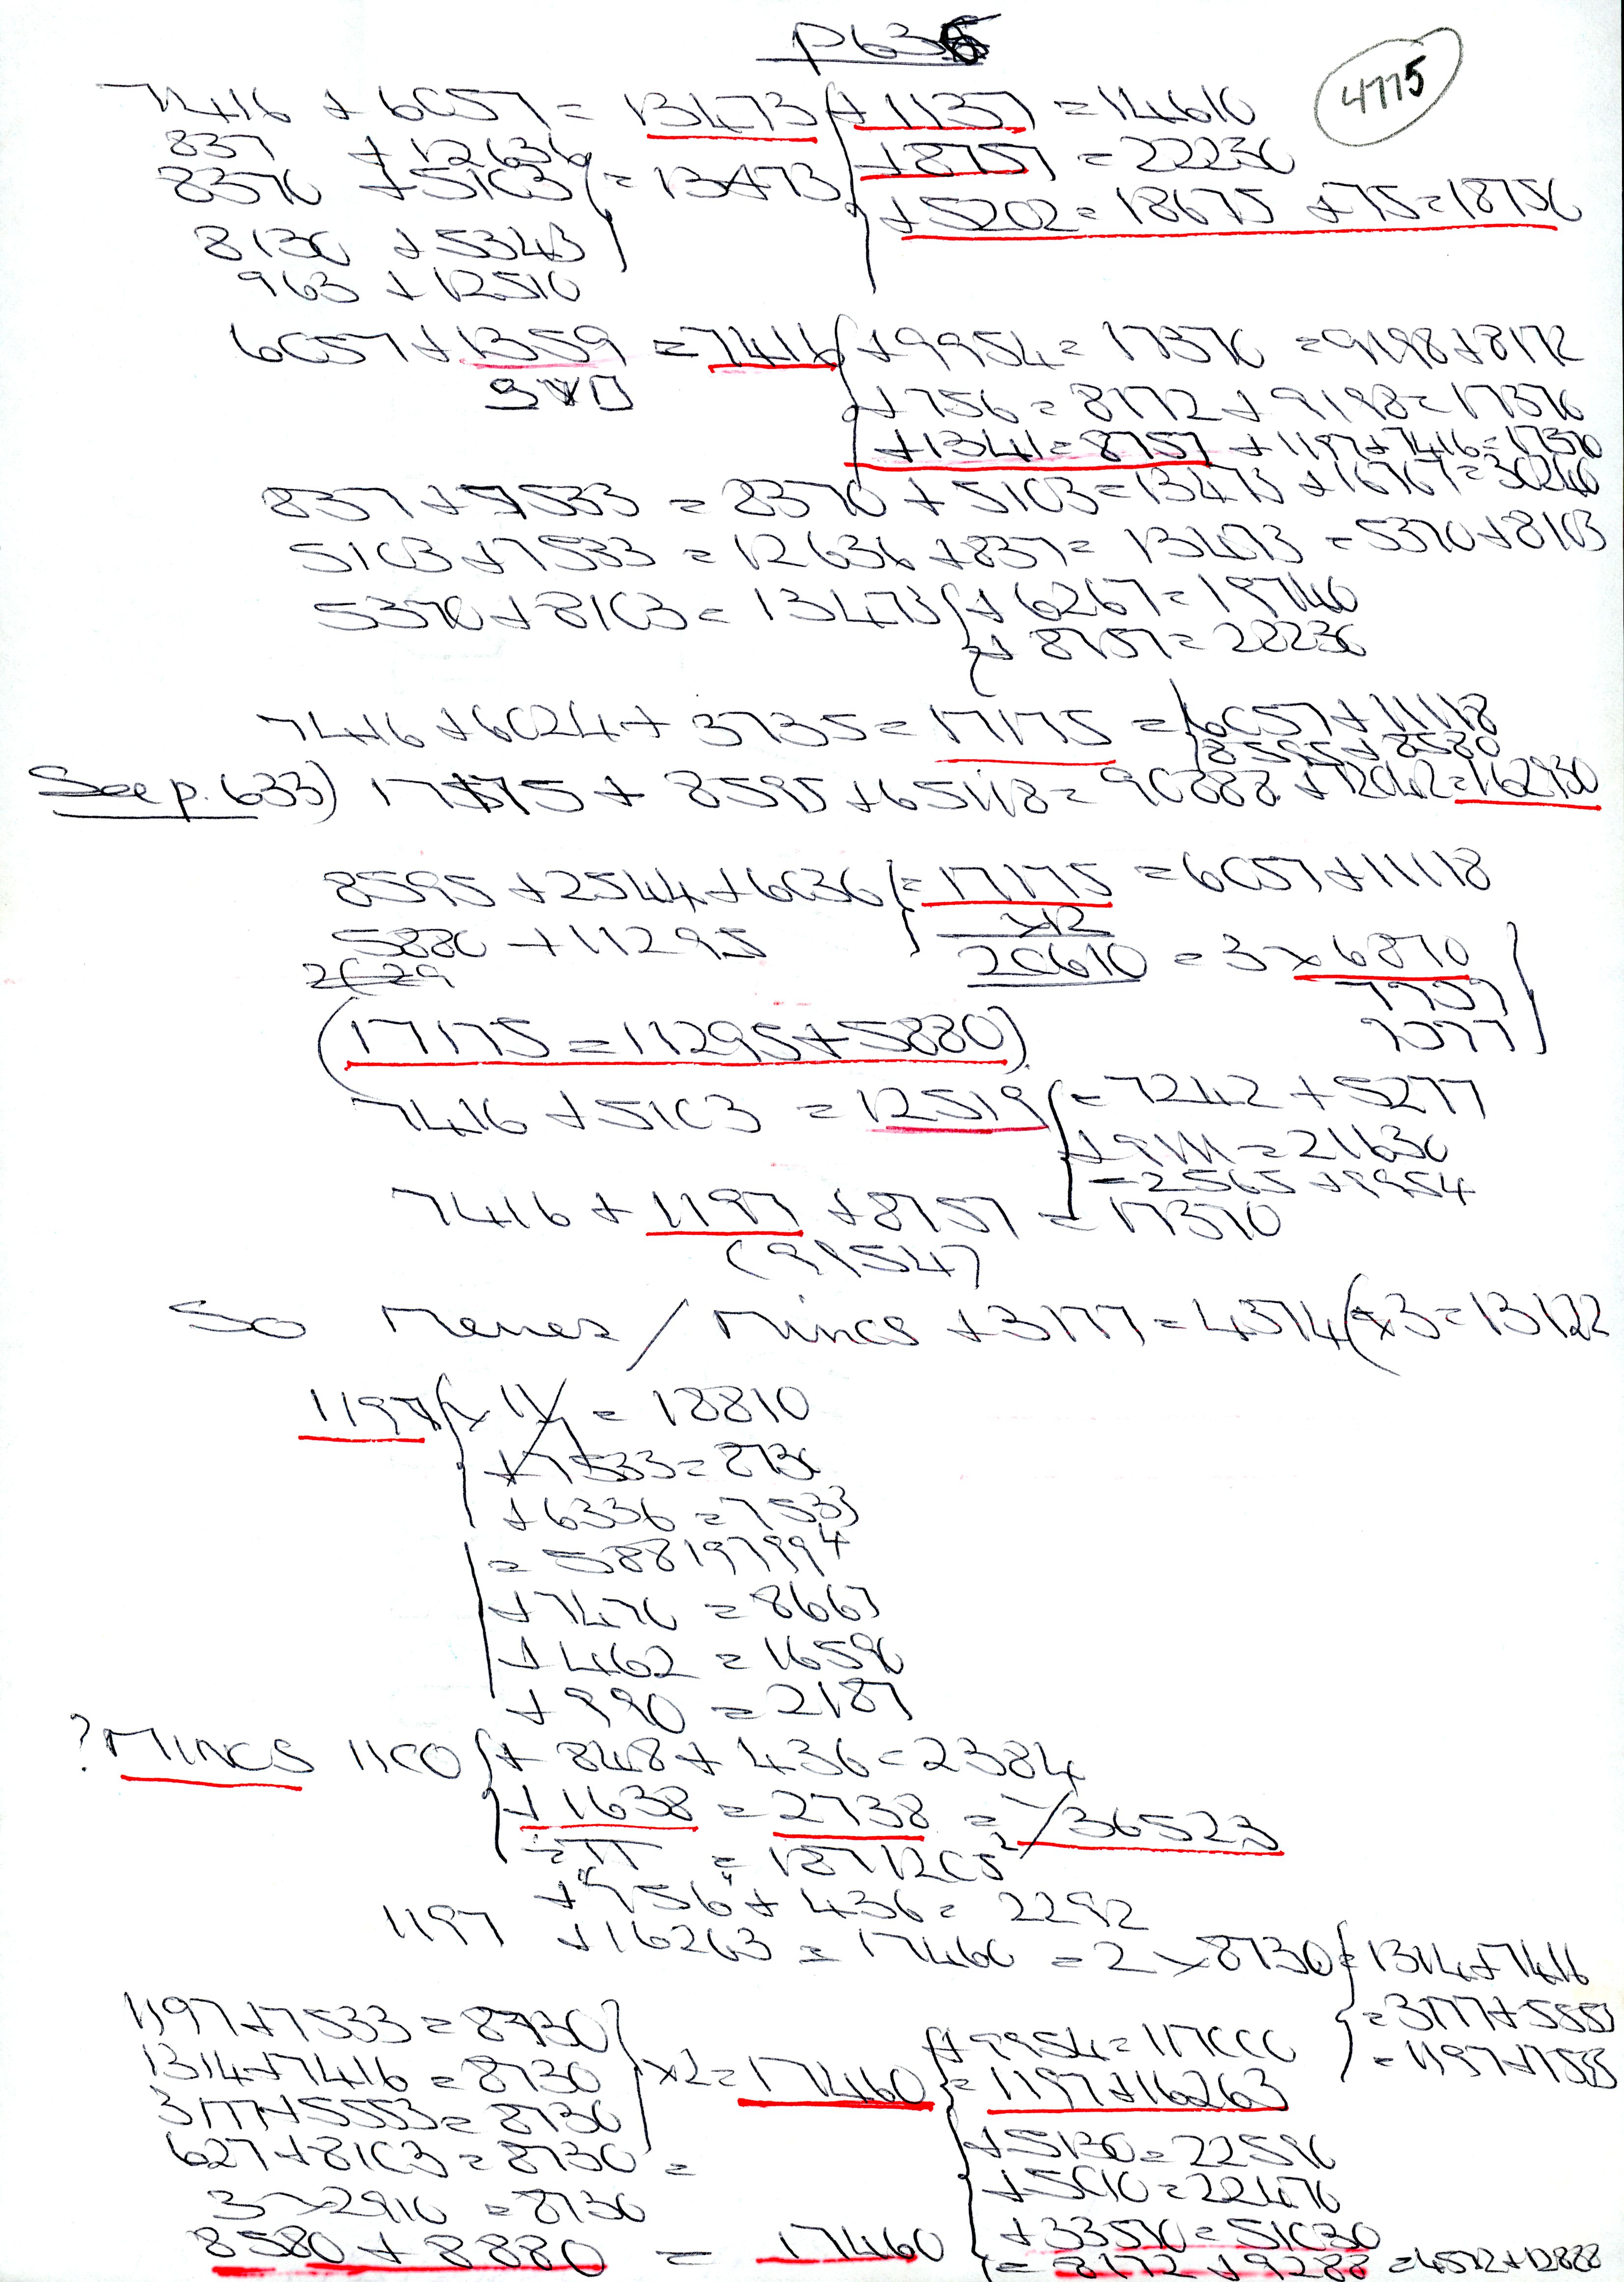 p636
4775
7416 + 6057 = 13473 + 1137 = 14610
837 + 12636 + 8757 = 22230
8370 + 5103 = 13473
+ 5202 = 18675 + 75 = 18750
8130 + 5343
963 + 12510
6057 + 1359 = 7416 + 9954 = 17370 = 9198 + 8172
+ 756 = 8172 + 9198 = 17370
+ 1341 = 8757 + 1197 + 7416 = 17370
837 + 7533 = 8370 + 5103 = 13473 + 16767 = 30240
5103 + 7533 = 12636 + 837 = 13473 = 5370 + 8103
5370 + 8103 = 13473 + 6267 = 19740
+ 8757 = 22230
7416 + 6024 + 3735 = 17175 = 6057 + 11118
8595 + 8580
See p. 633) 17175 + 8595 + 65118 = 90888 + 72042 = 162930
8595 + 2544 + 6036 = 17175 = 6057 + 11118
x12
5880 + 11295
20610 = 3 x 6870
(17175 = 11295 + 5880)
7416 + 5103 = 12519 = 7242 + 5277
+ 9111 = 21630
= 2565 + 9954
7416 + 1197 + 8757 = 17370
(99547
So Menes / Minos + 3177 = 4374 (x3 = 13122
1197 x 11/7 = 18810
+ 7533 = 8730
+ 6336 = 7533
= 588197994
+ 7470 = 8667
+ 462 = 1659
+ 990 = 2187
? Minos 1100 + 848 + 436 = 2384
+ 1638 = 2738 = 1/36523
+ "756" + 436 = 2292
1197 + 16263 = 17460 = 2 x 8730 = 1314 + 7416
= 3177 + 5553
= 1197 + 7533
1197 + 7533 = 8730
1314 + 7416 = 8730 x2 = 17460
3177 + 5553 = 8730
= 1197 + 16263
627 + 8103 = 8730 =
+ 5130 = 22590
+ 5010 = 22470
3 x 2910 = 8730
+ 33570 = 51030
8580 + 8880 = 17460
= 8172 + 9288 = 4572 + 12888